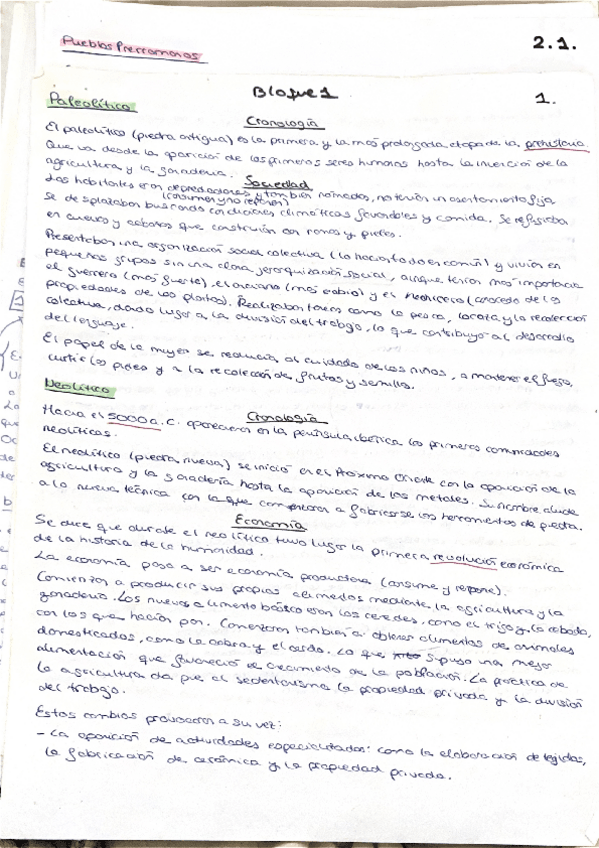 Pueblos Prerromanos
2.1.
Bloque 1
1.
Paleolítico
Cronología
El paleolítico (piedra antigua) es la primera y la mas prolongada etapa de la prehistoria.
Que va desde la aparición de los primeros seres humanos hasta la invención de la
agricultura y la ganaderia.
Sociedad
Los habitantes eran depredadores y también nómadas, no tenían un asentamiento fijo
(consumen y no reponen)
Se desplazaban buscando condiciones climáticas favorables y comida. Se refugiaban
en cuevas y cabañas que construían con ramas y pieles.
Presentaban una organización social colectiva (lo hacían todo en común) y vivían en
pequeños grupos sin una clara jerarquización social, aunque tenían mas importancia
el guerrero (mas fuerte), el anciano (mas sabio) y el hechicero (conocedor de las
propiedades de las plantas). Realizaban tareas como la pesca, la caza y la recolección
colectiva, dando lugar a la división del trabajo, lo que contribuyó al desarrollo
del lenguaje.
El papel de la mujer se reducía al cuidado de los niños, a mantener el fuego,
curtir las pieles y a la recolección de frutas y semillas.
Neolítico
Cronología
Hacia el 5000 a.C. aparecieron en la península ibérica las primeras comunidades
neolíticas.
El neolítico (piedra nueva) se inicio en el Próximo Oriente con la aparición de la
agricultura y la ganadería hasta la aparición de los metales. Su nombre alude
a la nueva técnica con la que comenzaron a fabricarse las herramientas de piedra.
Economía
Se dice que durante el neolítico tuvo lugar la primera revolución económica
de la historia de la humanidad.
La economía paso a ser economía productora (consume y repone).
Comienzan a producir sus propios alimentos mediante la agricultura y la
ganadería. Los nuevos alimento básico eran los cereales, como el trigo y la cebada,
con los que hacían pan. Comenzaron también a obtener alimentos de animales
domesticados, como la cabra y el cerdo. Lo que supuso una mejor
alimentación que favoreció el crecimiento de la población. La práctica de
la agricultura da pie al sedentarismo la propiedad privada y la división
del trabajo.
Estos cambios provocaron a su vez:
- La aparición de actividades especializadas: como la elaboración de tejidos,
la fabricación de cerámica y la propiedad privada.